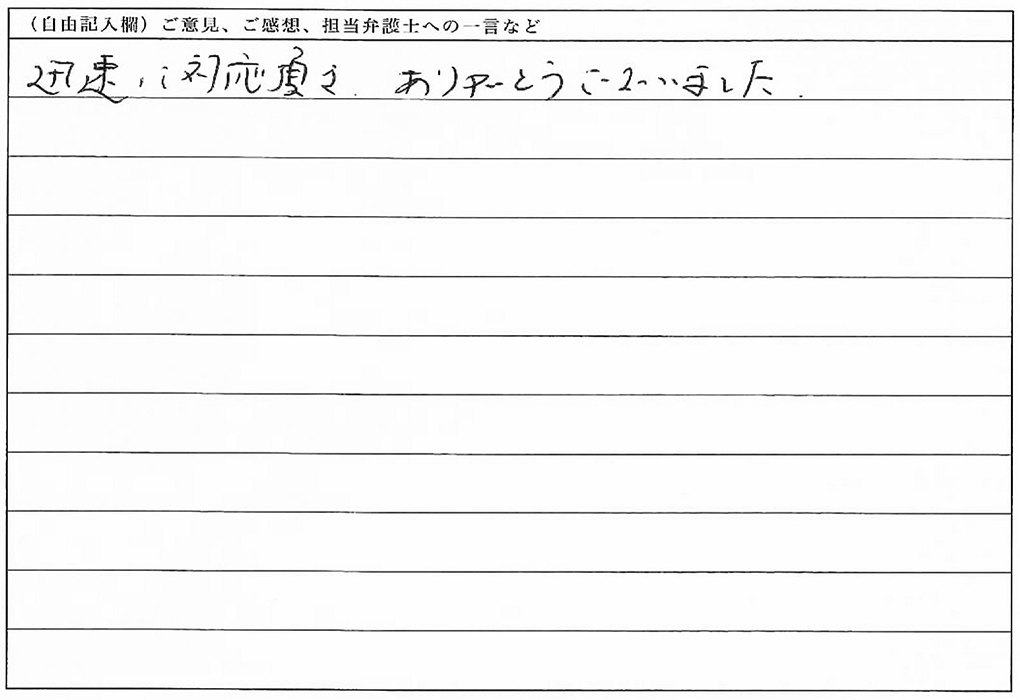 （自由記入欄）ご意見、ご感想、担当弁護士への一言など
迅速に対応頂き、ありがとうございました．